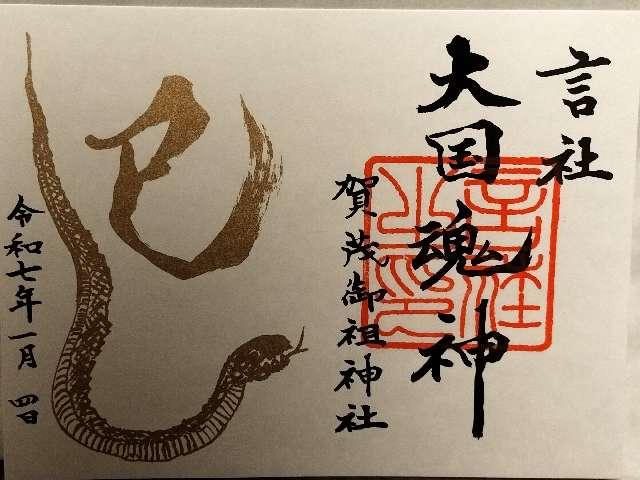 言社
大国魂神
賀茂御祖神社
巳
令和七年一月四日
言社之印